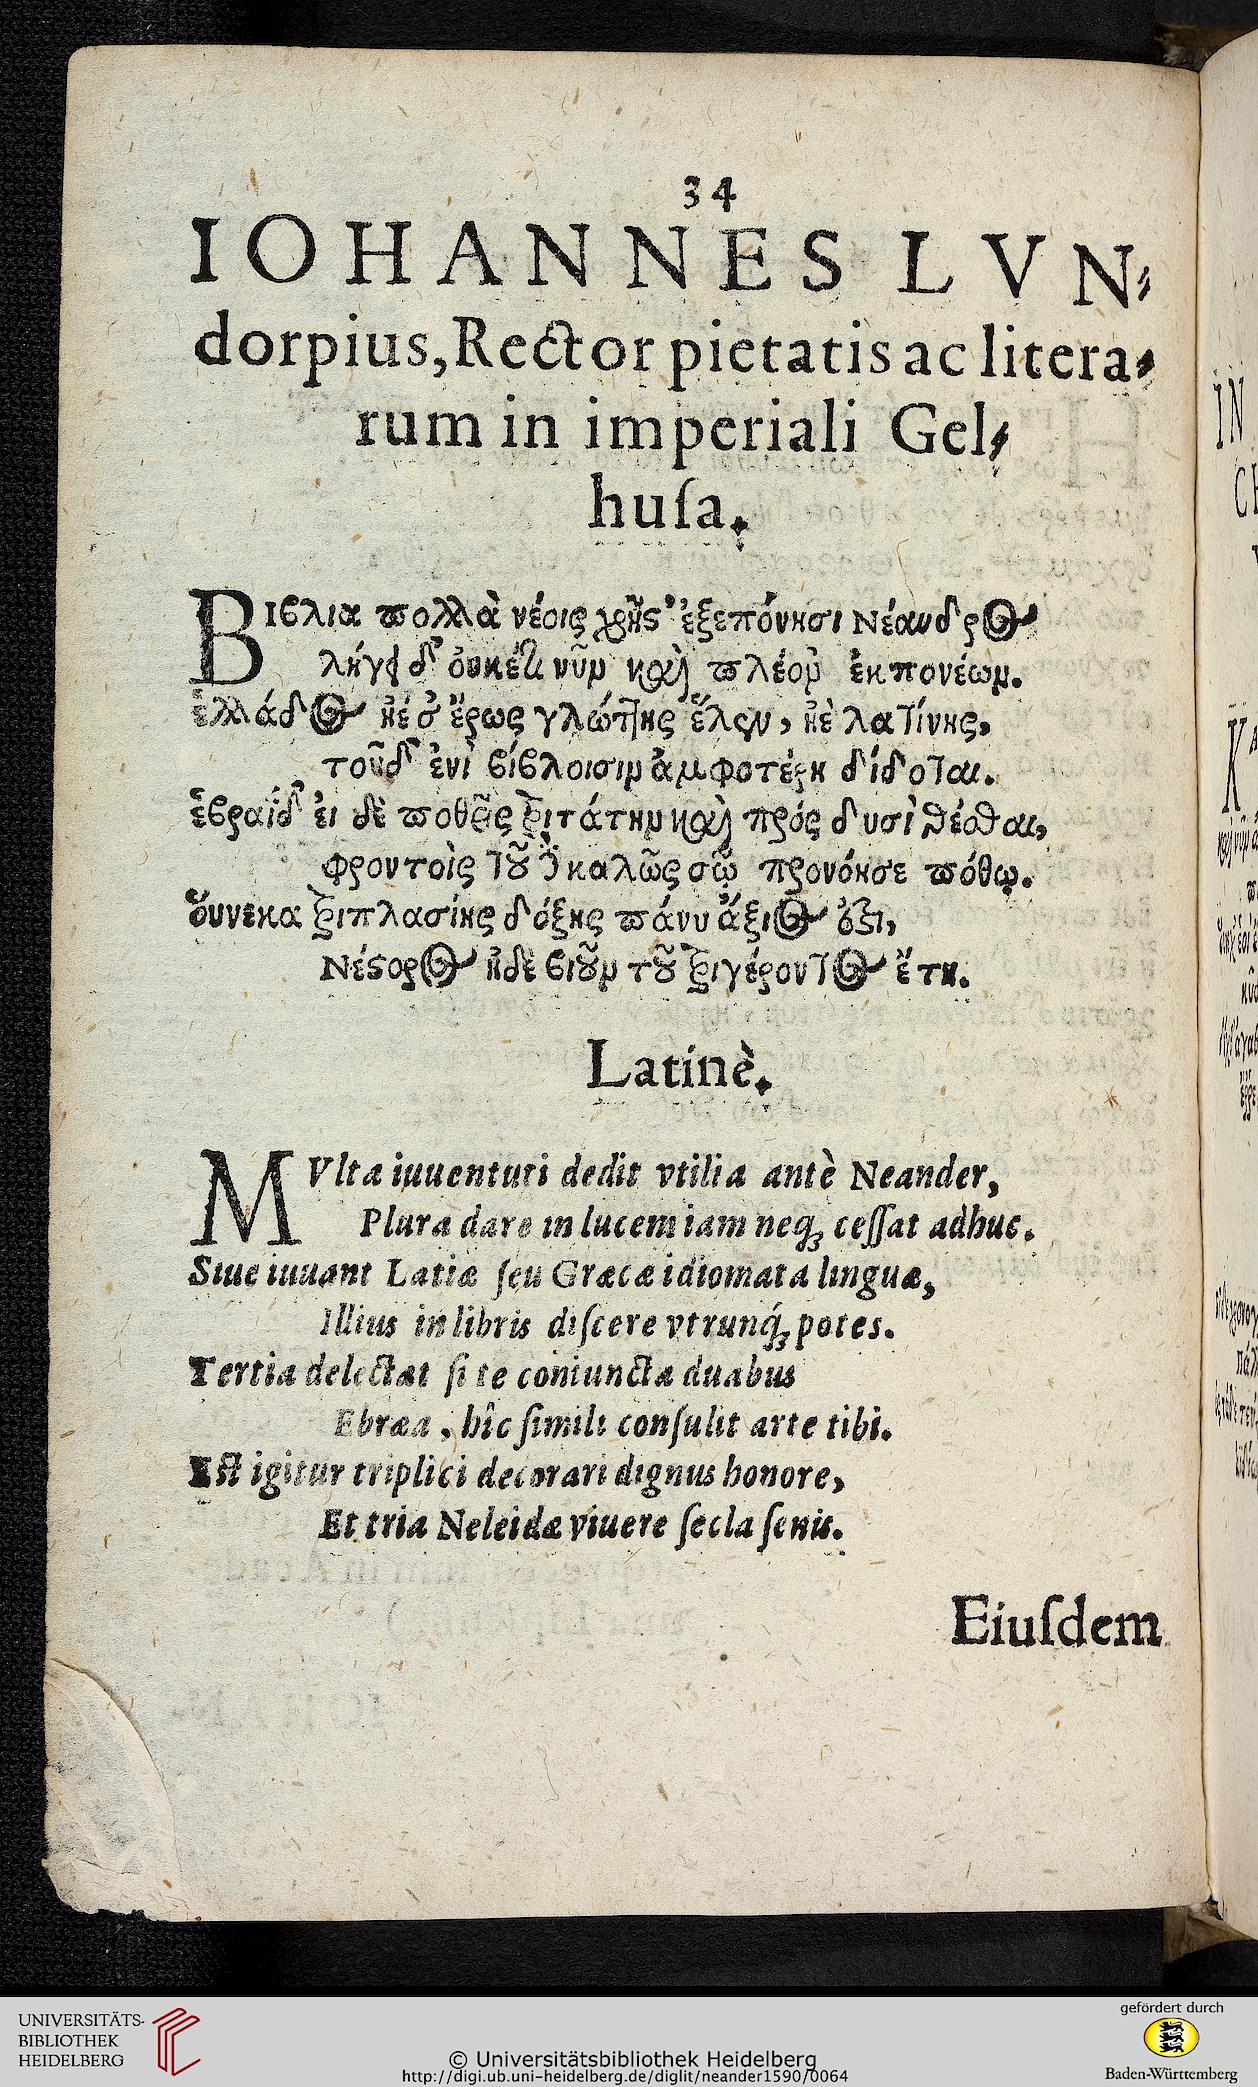 34
IOHANNES LVN-
dorpius, Rector pietatis ac litera-
rum in imperiali Gel-
husa.
Βιβλια πολλὰ νέοις χρῆς' ἐξεπόνησι Νέανδρος
λήγ δ' οὐκέτι νῦν καὶ πλέον ἐκπονέων.
ἑλλάδος ἠέ σ' ἔρως γλώττης ἕλεν, ἠὲ λατίνης,
τοῦδ' ἐνὶ βίβλοισιν ἀμφοτέρη δίδοται.
ἑβραΐδ' εἰ δὲ ποθεῖς τριτάτην καὶ πρός δυσὶ θέσθαι,
φροντοὶς καλῶς σῷ προνόησε πόθῳ.
οὕνεκα τριπλασίης δόξης πάνυ ἄξιος ὅστι,
Νέστορος ἠδὲ βιοῦν τοῦ τριγέροντος ἔτη.
Latinè.
MVlta iuuentuti dedit vtilia antè Neander,
Plura dare in lucem iam neq; cessat adhuc.
Siue iuuant Latiæ seu Græcæ idiomata linguæ,
Illius in libris discere vtrunq́; potes.
Tertia delectat si te coniuncta duabus
Ebræa, hîc simili consulit arte tibi.
Est igitur triplici decorari dignus honore,
Et tria Neleidæ viuere secla senis.
Eiusdem
UNIVERSITÄTS-
BIBLIOTHEK
HEIDELBERG
© Universitätsbibliothek Heidelberg
http://digi.ub.uni-heidelberg.de/diglit/neander1590/0064
gefördert durch
Baden-Württemberg